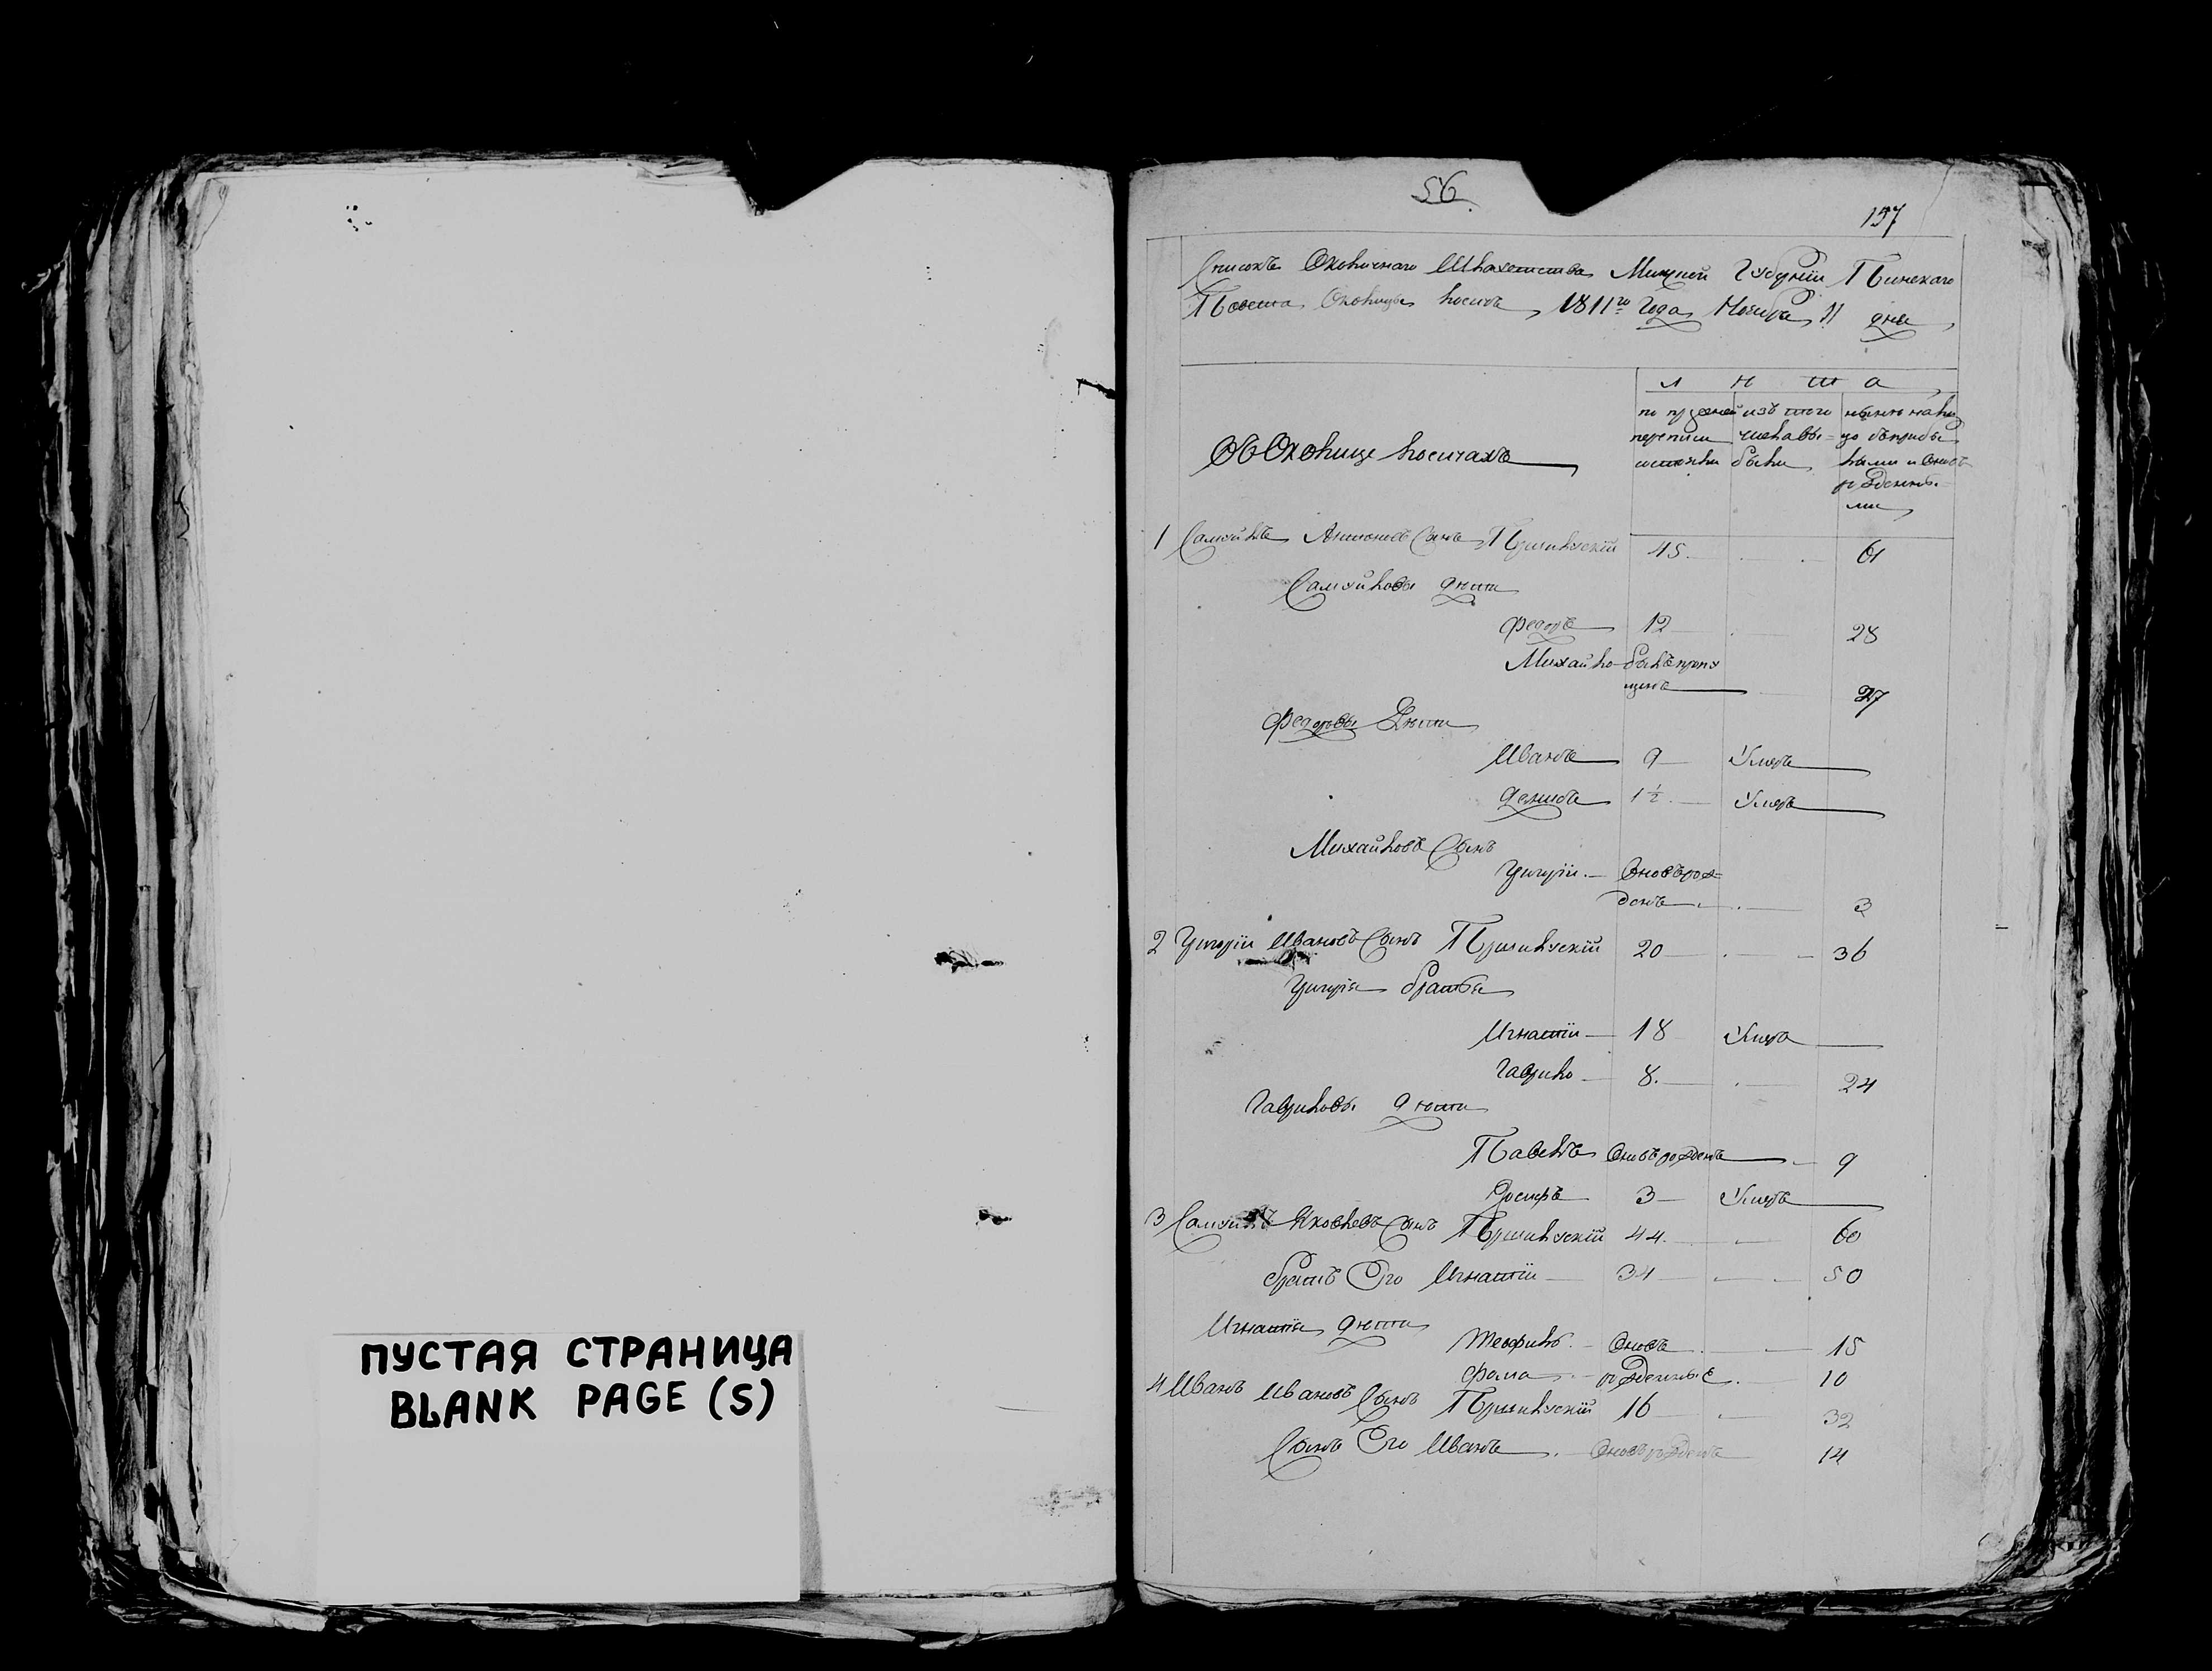 ПУСТАЯ СТРАНИЦА
BLANK PAGE (S)
56.
157
Списокъ Околичнаго Шляхетства Минской Губерніи Пинскаго
Повета Околицы 1811го Года Ноября 11 дня
л н т а
по прежней изъ того ныне нали
переписи числа вы= цо съ прибы
состояли были лыми и вновь
рожденны=
ми
Въ Околице
1 Самуйлъ Антоновъ Сынъ 45. 61
Самуйловы дети
Федоръ 12 28
Михайло былъ пропу
щенъ 27
Федоровы Дети
Иванъ 9 Умеръ
Демидъ 1 1/2. Умеръ
Михайловъ Сынъ
Григорій. Вновь рож=
денъ 3
2 Григорій Ивановъ Сынъ 20 36
Григорія братья
Игнатій 18 Умеръ
Гаврило 8. 24
Гавриловы дети
Павелъ Вновь рожденъ 9
3 Умеръ
3 Самуйлъ Яковлевъ Сынъ 44. 60
братъ Его Игнатій 34 50
Игнатія дети
Теофилъ. Вновь 15
Фома рожденные. 10
4 Иванъ Ивановъ Сынъ 16 32
Сынъ Его Иванъ. Вновь рожденъ 14